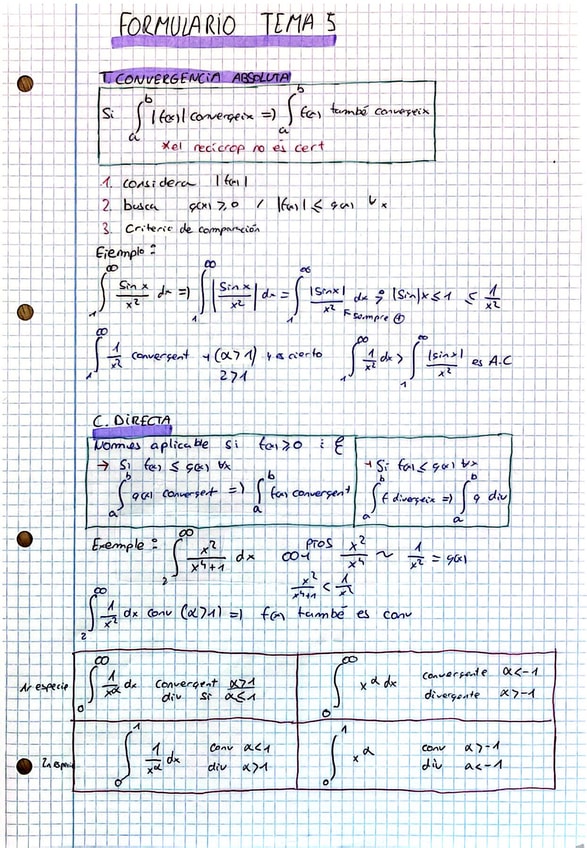 FORMULARIO TEMA 5
T. CONVERGENCIA ABSOLUTA
Si ∫_a^b |f(x)| convergeix => ∫_a^b f(x) també convergeix
*el recicrop no es cert
1. considera |f(x)|
2. busca g(x) ≥ 0 / |f(x)| ≤ g(x) ∀x
3. Criterio de comparación
Ejemplo:
∫_1^∞ sin x / x² dx => ∫_1^∞ |sin x / x²| dx = ∫_1^∞ |sin x| / x² dx ; |Sin|x ≤ 1 ≤ 1/x²
sempre ⊕
∫_1^∞ 1/x² convergent → (α>1) → es cierto ∫_1^∞ 1/x² dx > ∫_1^∞ |sin x| / x² es A.C
2>1
C. DIRECTA
Només aplicable si f(x) ≥ 0 i
→ Si f(x) ≤ g(x) ∀x
∫_a^b g(x) convergent => ∫_a^b f(x) convergent
→ Si f(x) ≤ g(x) ∀x
∫_a^b f divergeix => ∫_a^b g div
Exemple: ∫_2^∞ x² / (x⁴+1) dx ∞→ PTOS x²/x⁴ ~ 1/x² = g(x)
x²/(x⁴+1) < 1/x²
∫_2^∞ 1/x² dx conv (α>1) => f(x) també es conv
1r especie
∫_0^∞ 1/x^α dx convergent α>1
div si α≤1
∫_0^∞ x^α dx convergente α<-1
divergente α>-1
2n especie
∫_0^1 1/x^α dx conv α<1
div α>1
∫_0^1 x^α conv α>-1
div α<-1